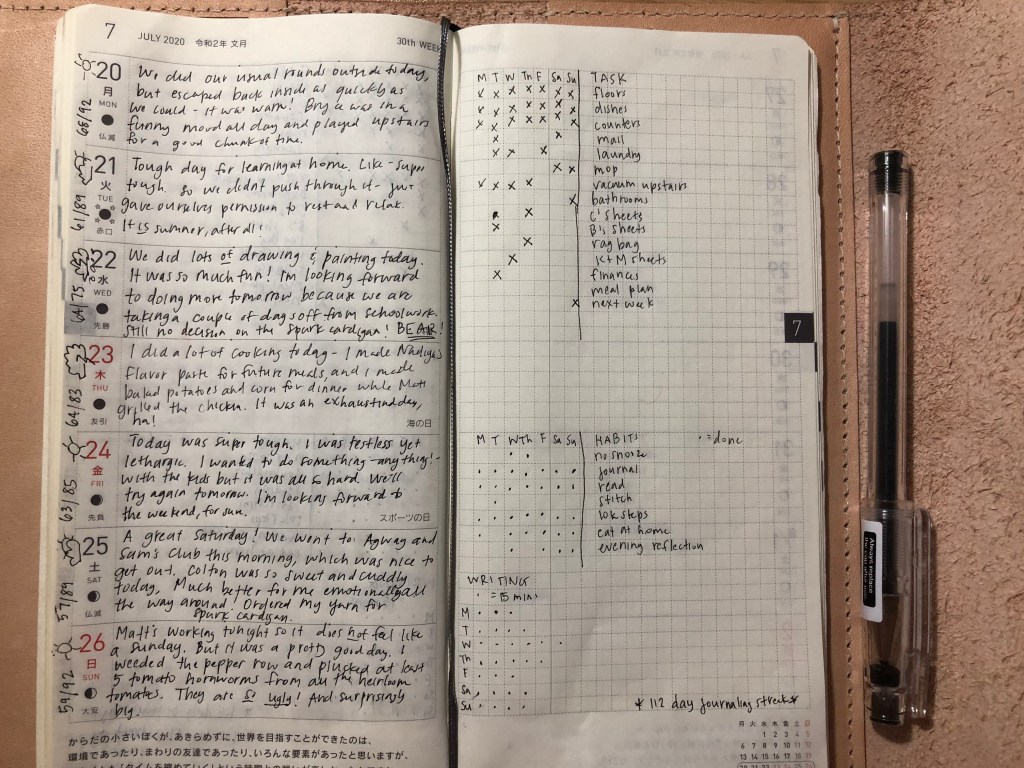 7 JULY 2020 令和2年 文月 30th WEEK
20 月 MON 仏滅
68/92
We did our usual rounds outside today,
but escaped back inside as quickly as
we could - it was warm! Bryce was in a
funny mood all day and played upstairs
for a good chunk of time.
21 火 TUE 赤口
61/89
Tough day for learning at home. Like - super
tough. So we didn't push through it - just
gave ourselves permission to rest and relax.
It is summer, after all!
22 水 WED 先勝
64/75
We did lots of drawing & painting today.
It was so much fun! I'm looking forward
to doing more tomorrow because we are
taking a couple of days off from schoolwork.
Still no decision on the Spark cardigan! BEAR!
23 木 THU 友引
64/83
I did a lot of cooking today - I made Nadiya's
flavor paste for future meals, and I made
baked potatoes and corn for dinner while Matt
grilled the chicken. It was an exhausting day,
ha!
海の日
24 金 FRI 先負
63/85
Today was super tough. I was restless yet
lethargic. I wanted to do something - anything! -
with the kids but it was all so hard. We'll
try again tomorrow. I'm looking forward to
the weekend, for sure.
スポーツの日
25 土 SAT 仏滅
57/89
A great Saturday! We went to Agway and
Sam's Club this morning, which was nice to
get out. Colton was so sweet and cuddly
today. Much better for me emotionally all
the way around! Ordered my yarn for
spark cardigan.
26 日 SUN 大安
59/92
Matt's working tonight so it does not feel like
a Sunday. But it was a pretty good day. I
weeded the pepper row and plucked at least
5 tomato hornworms from all the heirloom
tomatoes. They are so ugly! And surprisingly
big.
からだの小さいぼくが、あきらめずに、世界を目指すことができたのは、
環境であったり、まわりの友達であったり、いろんな要素があったと思いますが、
M T W Th F Sa Su TASK
x x x x x x x floors
x x x x x x x dishes
x x x x x x x counters
x x mail
x x x laundry
x x mop
x x x x vacuum upstairs
x bathrooms
x C's sheets
x B's sheets
x rag bag
x K+M sheets
x finances
meal plan
x next week
7
M T W Th F Sa Su HABITS • = done
no snooze
journal
read
stitch
10k steps
eat at home
evening reflection
WRITING
• = 15 mins
M
T
W
Th
F
Sa
Su
* 112 day journaling streak *
月 火 水 木 金 土 日
1 2 3 4 5
6 7 8 9 10 11 12
13 14 15 16 17 18 19
Always replace
the cap after use